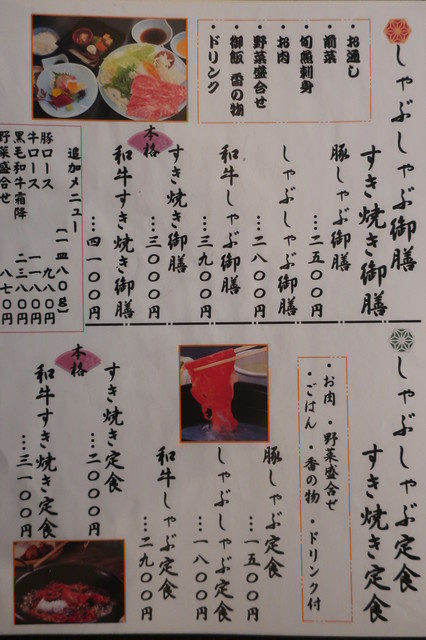 しゃぶしゃぶ御膳
すき焼き御膳
・お通し
・前菜
・旬魚刺身
・お肉
・野菜盛合せ
・御飯 香の物
・ドリンク
豚しゃぶ御膳
…二五〇〇円
しゃぶしゃぶ御膳
…二八〇〇円
和牛しゃぶ御膳
…三九〇〇円
本格
すき焼き御膳
…三〇〇〇円
和牛すき焼き御膳
…四一〇〇円
追加メニュー
(一四八〇g)
豚ロース 九八〇円
牛ロース 一一八〇円
黒毛和牛霜降 二三八〇円
野菜盛合せ 八七〇円
しゃぶしゃぶ定食
すき焼き定食
・お肉 ・野菜盛合せ
・ごはん ・香の物 ・ドリンク付
豚しゃぶ定食
…一五〇〇円
しゃぶしゃぶ定食
…一八〇〇円
和牛しゃぶ定食
…二九〇〇円
本格
すき焼き定食
…二〇〇〇円
和牛すき焼き定食
…三一〇〇円